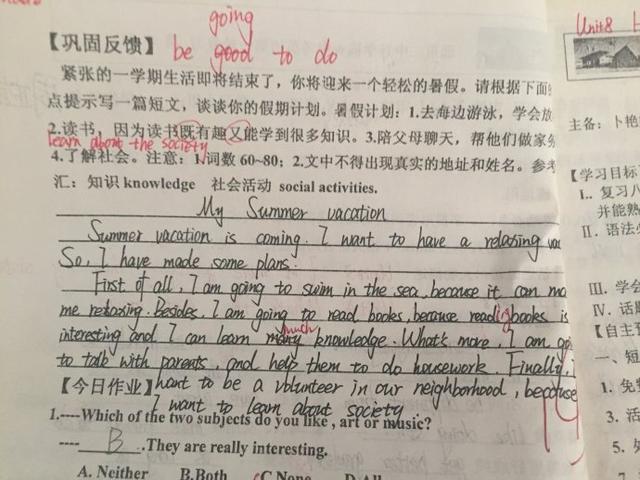 going
【巩固反馈】 be good to do
紧张的一学期生活即将结束了，你将迎来一个轻松的暑假。请根据下面
点提示写一篇短文，谈谈你的假期计划。暑假计划：1.去每边游泳，学会放
2.读书，因为读书既有趣又能学到很多知识。3.陪父母聊天，帮他们做家务
learn about the society
4.了解社会。注意：1.词数 60~80；2.文中不得出现真实的地址和姓名。参考
汇：知识 knowledge 社会活动 social activities.
My Summer vacation
Summer vacation is coming. I want to have a relaxing
So, I have made some plans.
First of all, I am going to swim in the sea, because it can
me relaxing. Besides, I am going to read books, because reading books is
much
interesting and I can learn many knowledge. What's more, I am
to talk with parents, and help them to do housework. Finally, I
【今日作业】 want to be a volunteer in our neighborhood, because
I want to learn about society.
1.----Which of the two subjects do you like, art or music?
---- B .They are really interesting.
A. Neither B.Both C.None D.All
Unit 8
主备：卜艳
【学习目标
I.. 复习八
并能熟
II. 语法
III. 学会
IV. 话题
【自主预
一、短
1. 免费
3. 活
5. 外
7.